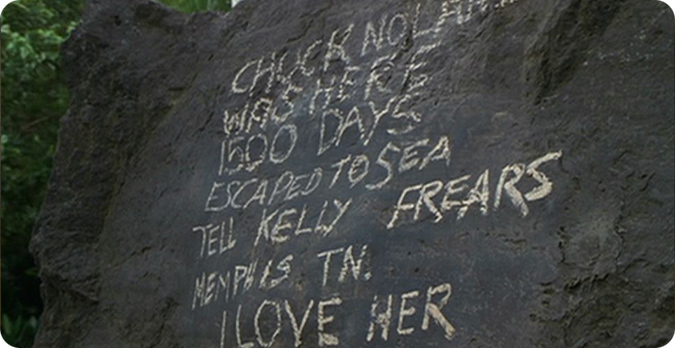 CHUCK NOLAND
WAS HERE
1500 DAYS
ESCAPED TO SEA
TELL KELLY FREARS
MEMPHIS TN.
I LOVE HER